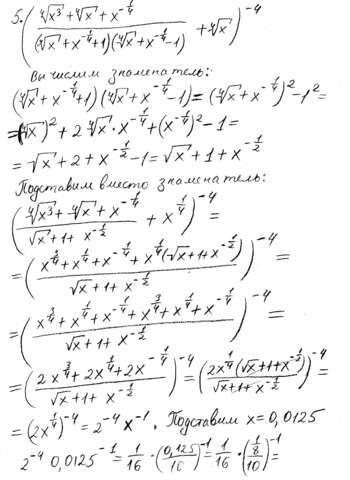 5. ( (∜x³ + ∜x + x^(-1/4)) / ((∜x + x^(-1/4) + 1)(∜x + x^(-1/4) - 1)) + ∜x )^(-4)
Вычислим знаменатель:
(∜x + x^(-1/4) + 1)(∜x + x^(-1/4) - 1) = (∜x + x^(-1/4))² - 1² =
= (∜x)² + 2·∜x · x^(-1/4) + (x^(-1/4))² - 1 =
= √x + 2 + x^(-1/2) - 1 = √x + 1 + x^(-1/2)
Подставим вместо знаменатель:
( (∜x³ + ∜x + x^(-1/4)) / (√x + 1 + x^(-1/2)) + x^(1/4) )^(-4) =
= ( (x^(3/4) + x^(1/4) + x^(-1/4) + x^(1/4)(√x + 1 + x^(-1/2))) / (√x + 1 + x^(-1/2)) )^(-4) =
= ( (x^(3/4) + x^(1/4) + x^(-1/4) + x^(3/4) + x^(1/4) + x^(-1/4)) / (√x + 1 + x^(-1/2)) )^(-4) =
= ( (2x^(3/4) + 2x^(1/4) + 2x^(-1/4)) / (√x + 1 + x^(-1/2)) )^(-4) = ( (2x^(1/4)(√x + 1 + x^(-1/2))) / (√x + 1 + x^(-1/2)) )^(-4) =
= (2x^(1/4))^(-4) = 2^(-4) x^(-1). Подставим x = 0,0125
2^(-4) 0,0125^(-1) = 1/16 · (0,125/10)^(-1) = 1/16 · ((1/8)/10)^(-1) =